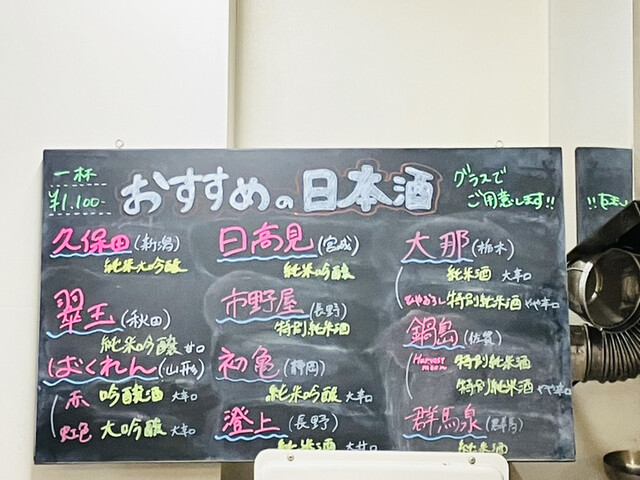 一杯
¥1,100-
おすすめの日本酒
グラスで
ご用意します!!
久保田(新潟)
純米大吟醸
翠玉(秋田)
純米吟醸 甘口
ばくれん(山形)
赤 吟醸酒 大辛口
虹色 大吟醸 大辛口
日高見(宮城)
純米吟醸
市野屋(長野)
特別純米酒
初亀(静岡)
純米吟醸 大辛口
澄上(長野)
純米酒 大甘口
大那(栃木)
純米酒 大辛口
ひやおろし 特別純米酒 やや辛口
鍋島(佐賀)
Harvest moon 特別純米酒
特別純米酒 やや辛口
群馬泉(群馬)
純米酒